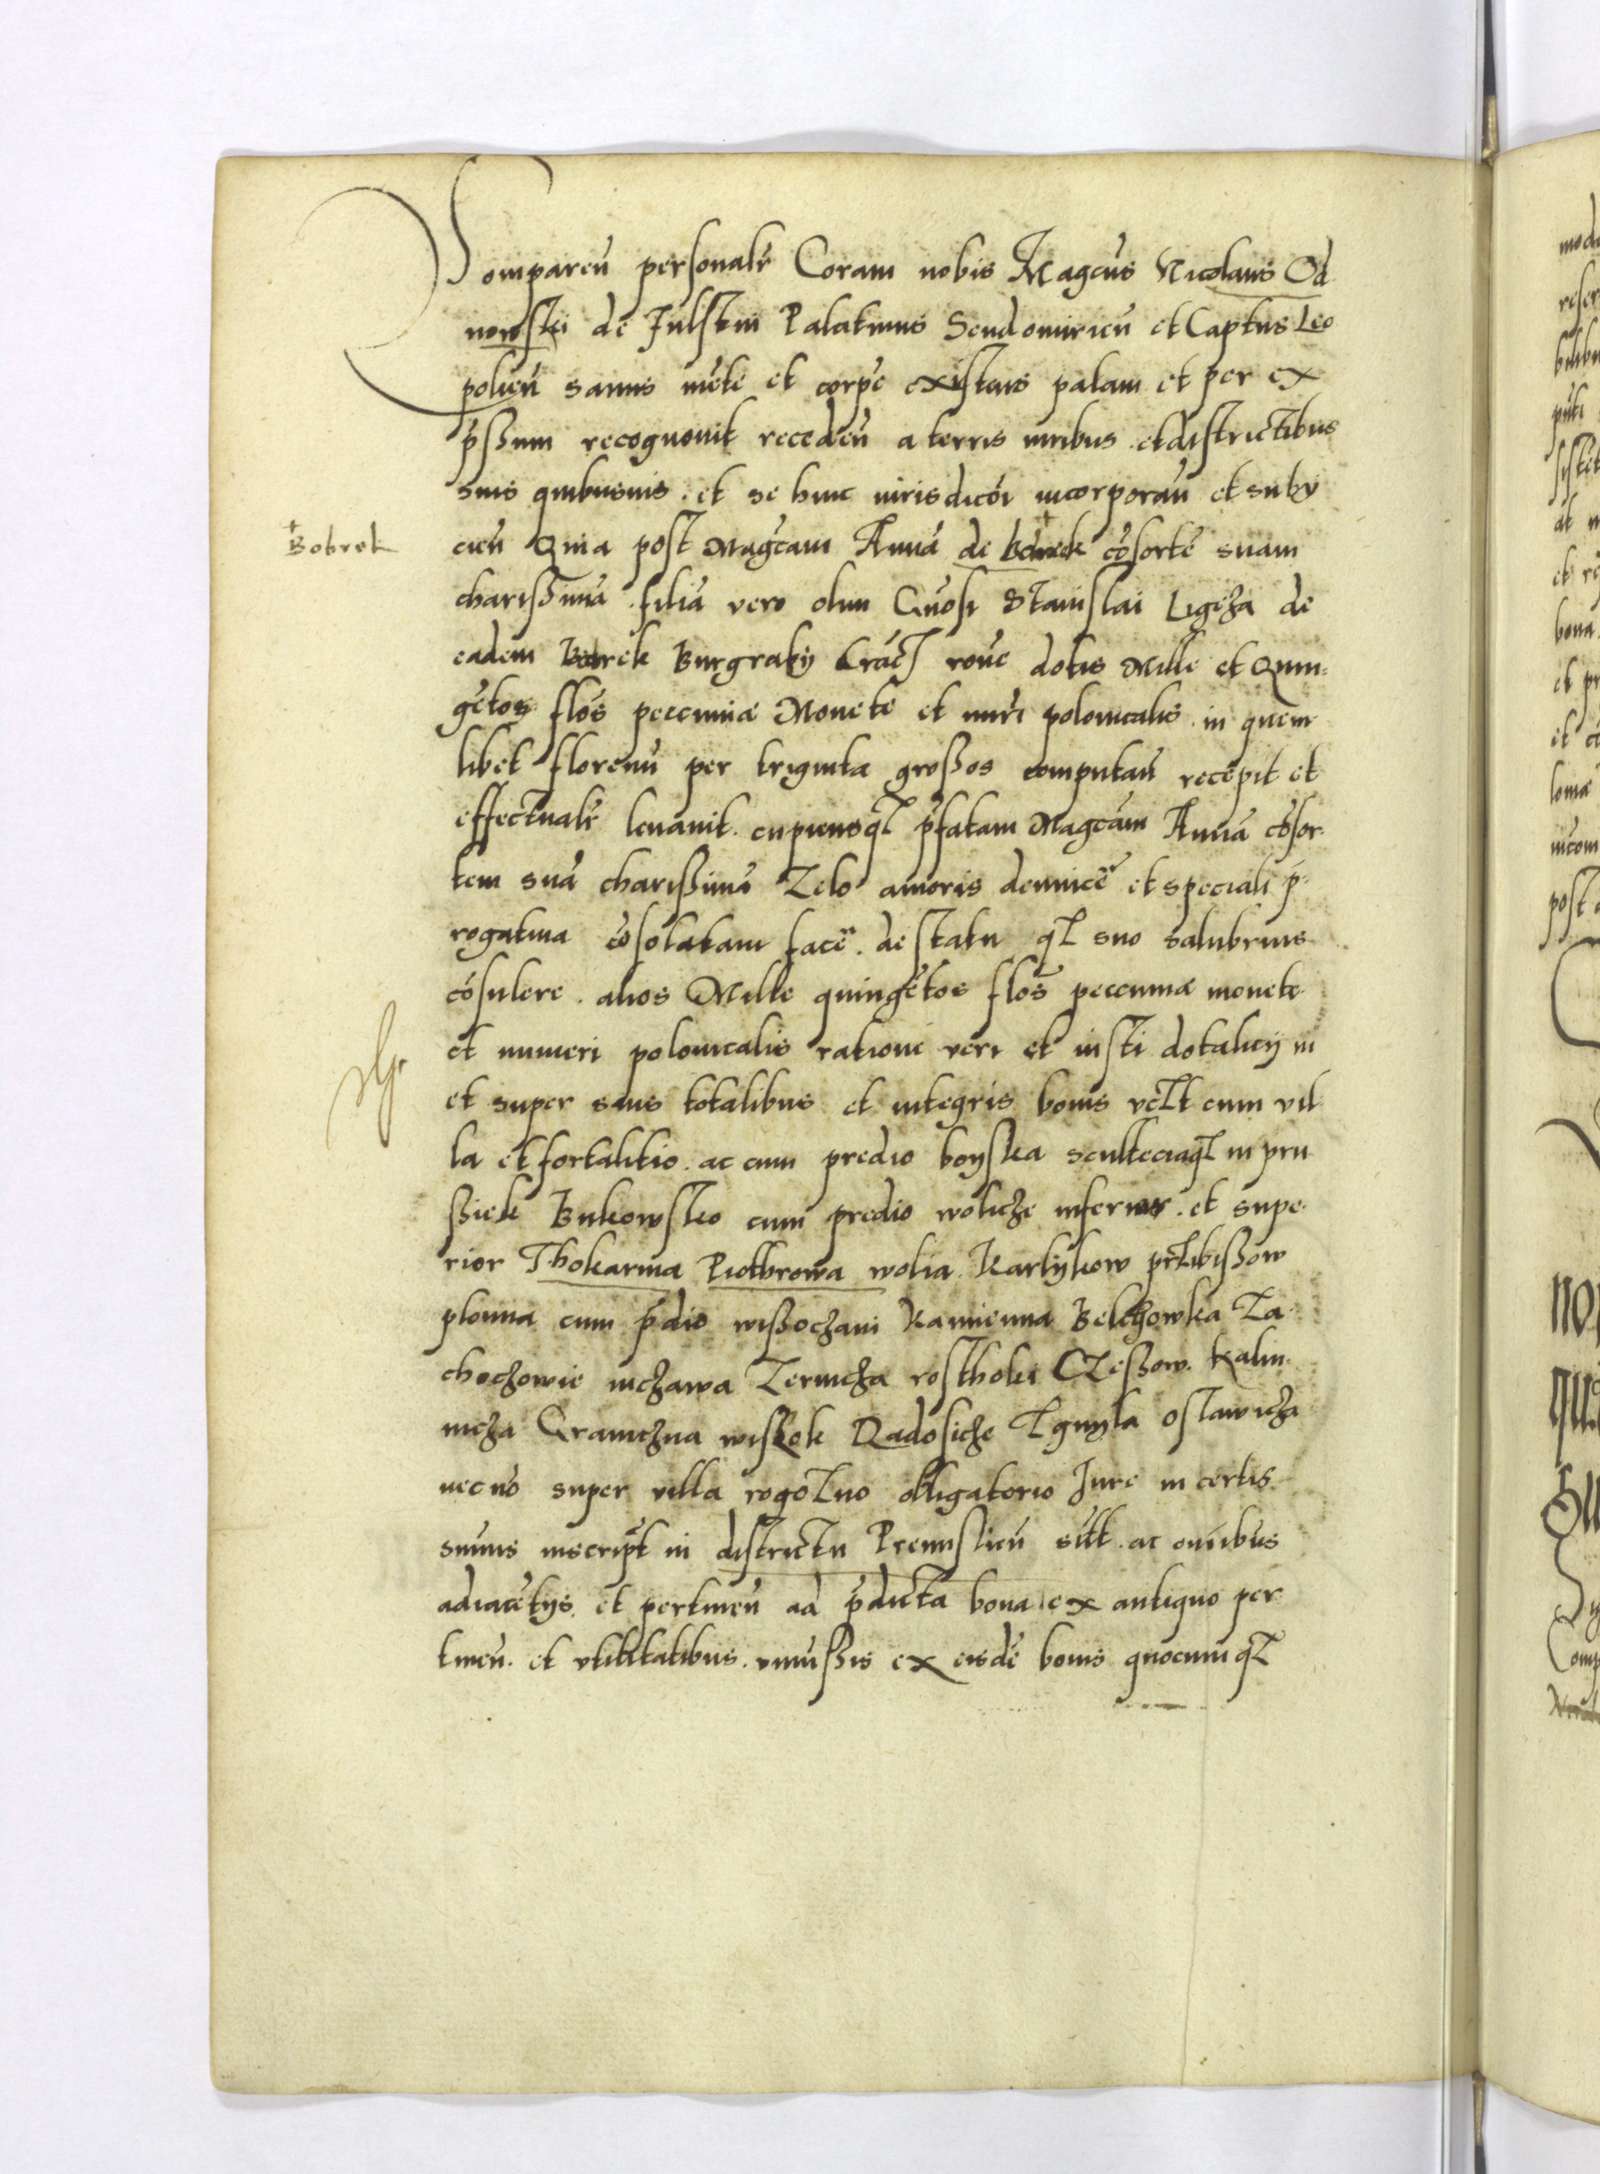 Compareñ personalr̃ Coram nobis Magcũs Nicolaus Od
nowski de Fulstein Palatinus Sendomirieñ et Captus Leo
polieñ sanus mẽte et corpẽ existens palam et per ex
p̃ssum recognovit recedeñ a terris iuribus et districtibus
suis quibusvis et se huic iurisdicõi incorporañ et subÿ
+ Bobrek
cieñ Quia post Magc̃am Annã de Bobrek cõsortẽ suam
charissimã filiã vero olim Gñosi Stanislai Ligeza de
eadem Bobrek Burgrabÿ Crac̃ roñe dotis Mille et Quin-
gẽtos flõs peccuniæ Monete et nũri polonicalis in quem
libet florenũ per triginta grossos computañ recepit et
effectualr̃ levavit cupiensq p̃fatam Magc̃am Annã cõsor
tem suã charissimã Zelo amoris et speciali p̃
rogativa cõsolatam facẽ de statu q suo salubrius
cõsulere alios Mille quingẽtos flõs peccuniæ monete
et numeri polonicalis ratione veri et iusti dotalicÿ in
et super suis totalibus et integris bonis vclt cum vil
la et fortalitio ac cum predio boÿska scultecia q in pru
ssiek Bukowsko cum predio wolicze inferior et supe
rior Thokarnia Piotbrowa wolia Karlÿkow przibissow
plonna cum p̃dio wissoczani Kamienna Belchowka Za
choczowie niczawa Zernicza rosthoki Czessow Kalni
nicza Graniczna wisszok Radosicze Zgnyla oslawicza
necnõ super villa rogozno obligatorio Jure in certis
sum̃is inscript̃ in districtu Premislieñ sitt ac om̃ibus
adiacẽtÿs et pertineñ ad p̃dicta bona ex antiquo per
tineñ et vtilitatibus vnivssis ex eisdẽ bonis quocumq